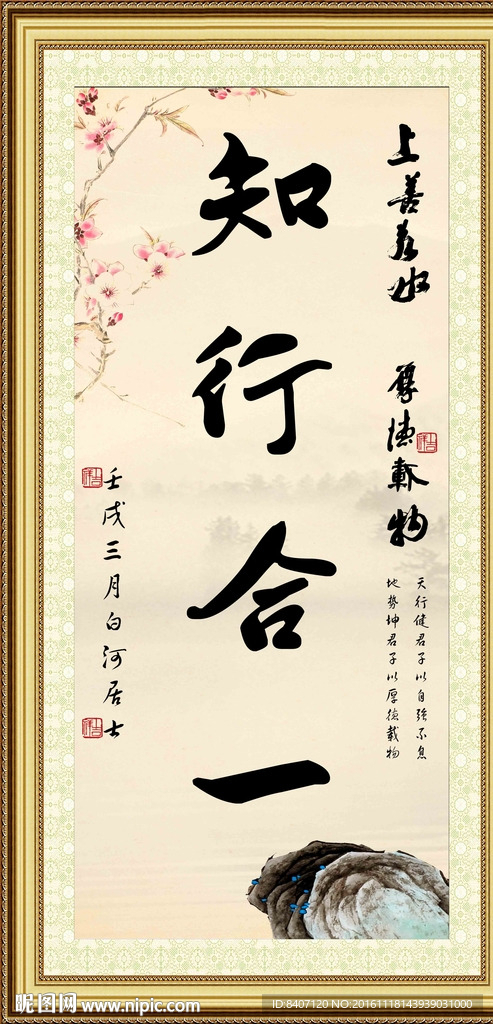 知行合一
上善若水
厚德载物
天行健君子以自强不息
地势坤君子以厚德载物
壬戌三月白河居士
昵图网 www.nipic.com
ID:8407120 NO:20161118143939031000